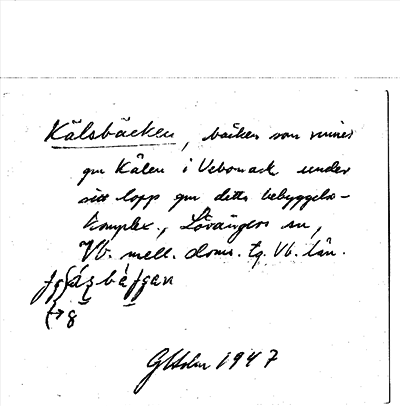 Kälsbäcken, bäcken som rinner
gm Kålen i Uebomark under
sitt lopp gm detta bebyggelse-
komplex., Lövångers sn,
Vb. mell. doms. tg. Vb. län.
1947